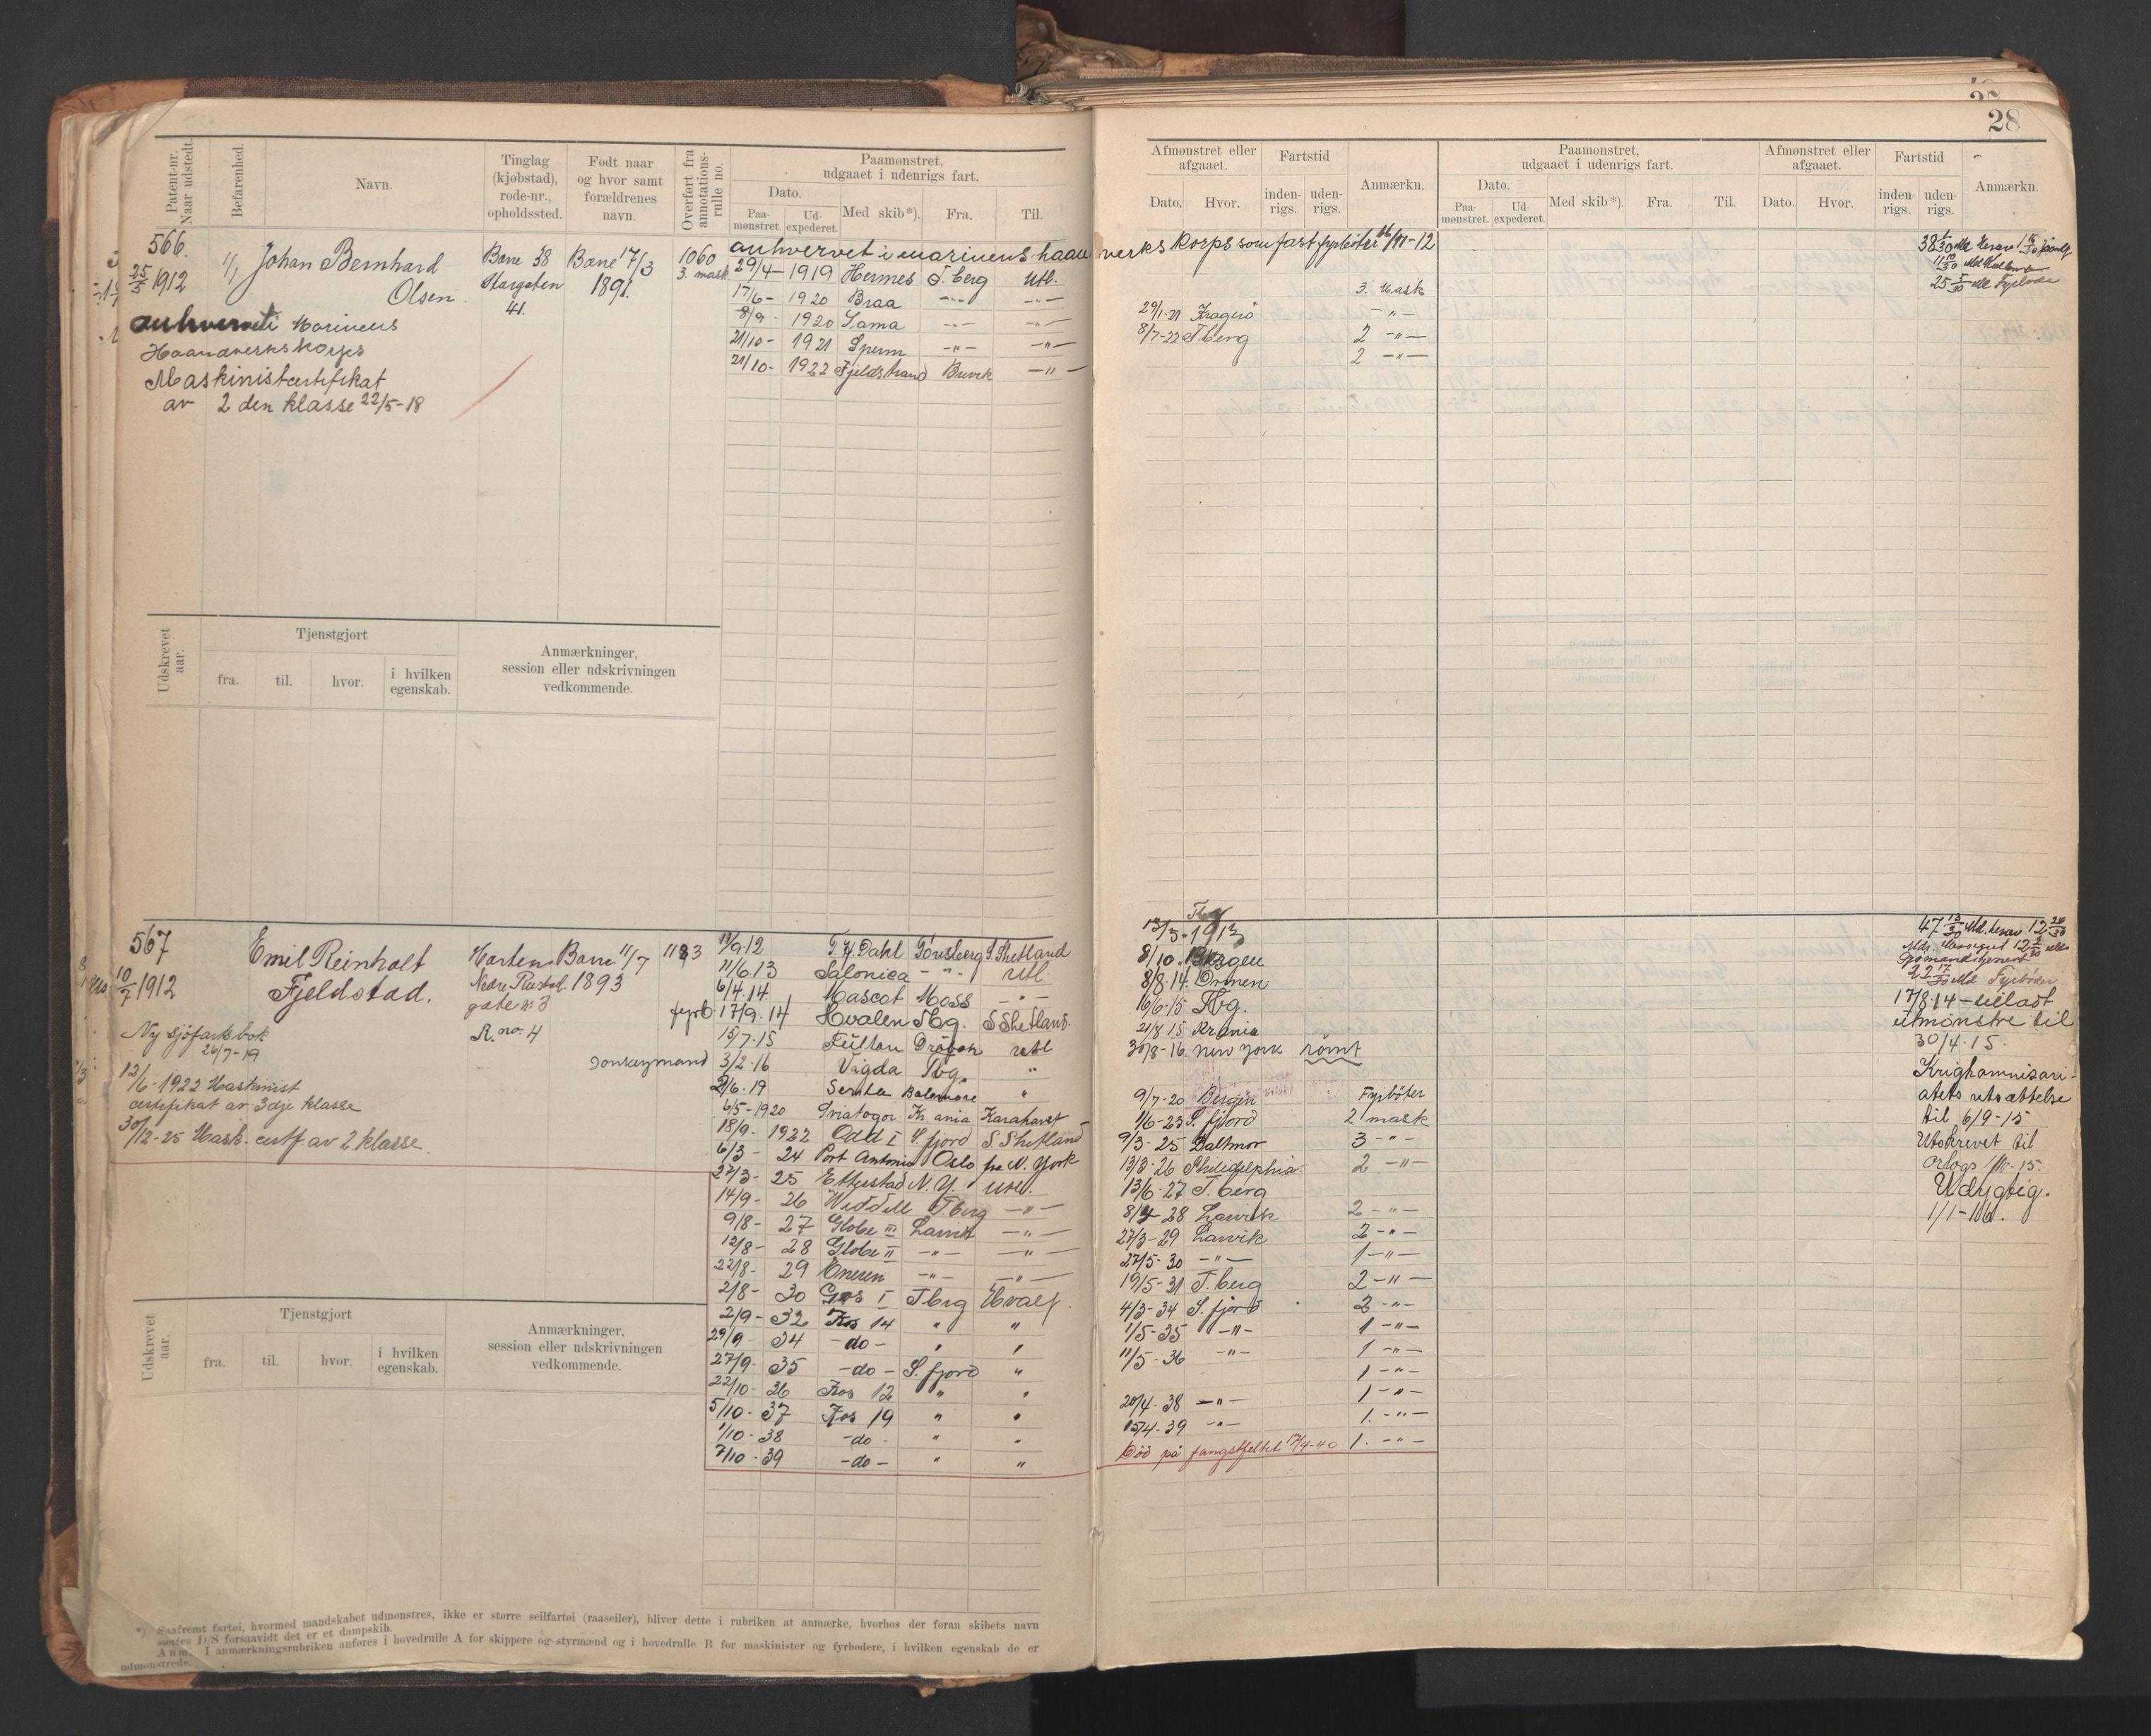 28
Patent-nr. Naar udstedt.
Befarenhed.
Navn.
Tinglag (kjøbstad), rode-nr., opholdssted.
Født naar og hvor samt forældrenes navn.
Overført fra annotations-rulle no.
Paamønstret, udgaaet i udenrigs fart.
Dato.
Paa-mønstret.
Ud-expederet.
Med skib*).
Fra.
Til.
Afmønstret eller afgaaet.
Dato.
Hvor.
Fartstid
inden-rigs.
uden-rigs.
Anmærkn.
Paamønstret, udgaaet i udenrigs fart.
Dato.
Paa-mønstret.
Ud-expederet.
Med skib*).
Fra.
Til.
Afmønstret eller afgaaet.
Dato.
Hvor.
Fartstid
inden-rigs.
uden-rigs.
Anmærkn.
566.
25/5 1912
1/1
Johan Bernhard
Olsen.
Borre 38
Storgaten
41.
Borre 17/3
1891.
1060
3. mask
anhvervet i marinens haandverks korps som fast fyrbøter 16/11-12
29/4 - 1919 Hermes T.berg Utl.
17/6 - 1920 Braa -"- -"-
8/9 - 1920 Sama -"- -"-
21/10 - 1921 Sperm -"- -"-
21/10 - 1922 Fjeldstrand Brevik -"-
3. Mask
29/1-21 Kragerö -"-
8/7-22 T.berg 2 -"-
2 -"-
anhvervet i Marinens
Haandverkskorps
Maskinistcertifikat
av 2 den klasse 22/5-18
Udskrevet aar.
Tjenstgjort
fra.
til.
hvor.
i hvilken egenskab.
Anmærkninger, session eller udskrivningen vedkommende.
567
10/7 1912
Emil Reinholt
Fjeldstad.
Horten
Nedre
gate n: 3
R. no. 4
Borre 11/7
1893
1183
fyrb.
Donkeymand
Ny sjöfartsbok
26/7-19
12/6-1922 Maskinist
certifikat av 3dje klasse
30/12-25 Mask. certf av 2. klasse.
12/9.12 T. Dahl Tönsberg S. Shetland
11/6.13 Salonica -"- Utl.
6/4.14. Mascot Moss -"-
17/9.14 Hvalen Tbg. S Shetland.
15/7-15 Fulton Dröbak utl
3/2-16 Vigda Tbg. "
2/6.19 Senta "
6/5-1920 Kr.ania
18/9 - 1922 Odd I S. fjord S Shetland
6/3 - 24 Port Antonio Oslo fra N. York
27/3 - 25 N.Y. utl.
14/9 - 26 Weddell T.berg -"-
9/8 - 27 Globe III Larvik -"-
12/8 - 28 Globe II -"- -"-
22/8 - 29 Ørnen -"- -"-
2/8 - 30 Gos I Tbrg Hvalf.
2/9 - 32 Kos 14 " "
29/9 34 -do- " "
27/9 - 35 -do- S. fjord "
22/10 - 36 Kos 12 " "
5/10 - 37 Kos 19 " "
1/10 - 38 -do- " "
7/10 - 39 -do- " "
Tbg
13/5-1913
8/10. Bergen
8/8-14. Ornen
16/6-15 Tbg.
21/8 15 Kr.ania
30/8-16. New York römt
9/7-20 Bergen Fyrböter
1/6-23 S. fjord 2 mask
9/3-25 Baltmor 3 -"-
13/8-26 Philidelphia 2 -"-
13/6-27 T.berg
8/4 28 Larvik 2 -"-
27/3-29 Larvik 2 -"-
27/5-30 -"- 1 -"-
19/5-31 T.berg 2 -"-
4/3-34 S. fjord 2 -"-
1/5-35 -"- 1 -"-
11/5-36 -"- 1 -"-
1 -"-
20/4-38 -"- 1 -"-
15/4-39 -"- 1. -"-
Död på fangstfeltet 17/4-40 1. -"-
17/8-14 - tilladt
utmønstre til
30/4-15.
utsættelse
til 6/9-15
Utskrevet til
orlogs
Udygtig.
1/1-16.
Udskrevet aar.
Tjenstgjort
fra.
til.
hvor.
i hvilken egenskab.
Anmærkninger, session eller udskrivningen vedkommende.
*) Saafremt fartøi, hvormed mandskabet udmønstres, ikke er større seilfartøi (raaseiler), bliver dette i rubriken at anmærke, hvorhos der foran skibets navn
sættes D/S forsaavidt det er et dampskib.
Anm. I anmærkningsrubriken anføres i hovedrulle A for skippere og styrmænd og i hovedrulle B for maskinister og fyrbødere, i hvilken egenskab de er
udmønstrede.